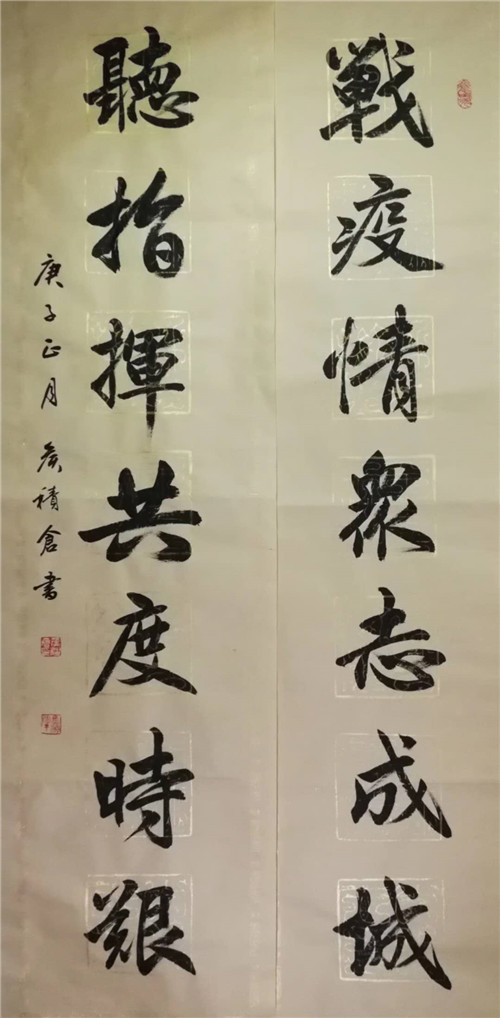 戰疫情眾志成城
聽指揮共度時艱
庚子正月 侯積倉書